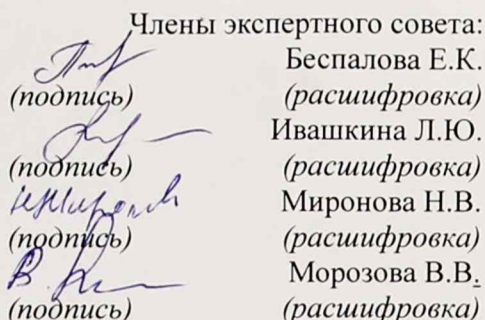 Члены экспертного совета:
Беспалова Е.К.
(подпись) (расшифровка)
Ивашкина Л.Ю.
(подпись) (расшифровка)
Миронова Н.В.
(подпись) (расшифровка)
Морозова В.В.
(подпись) (расшифровка)